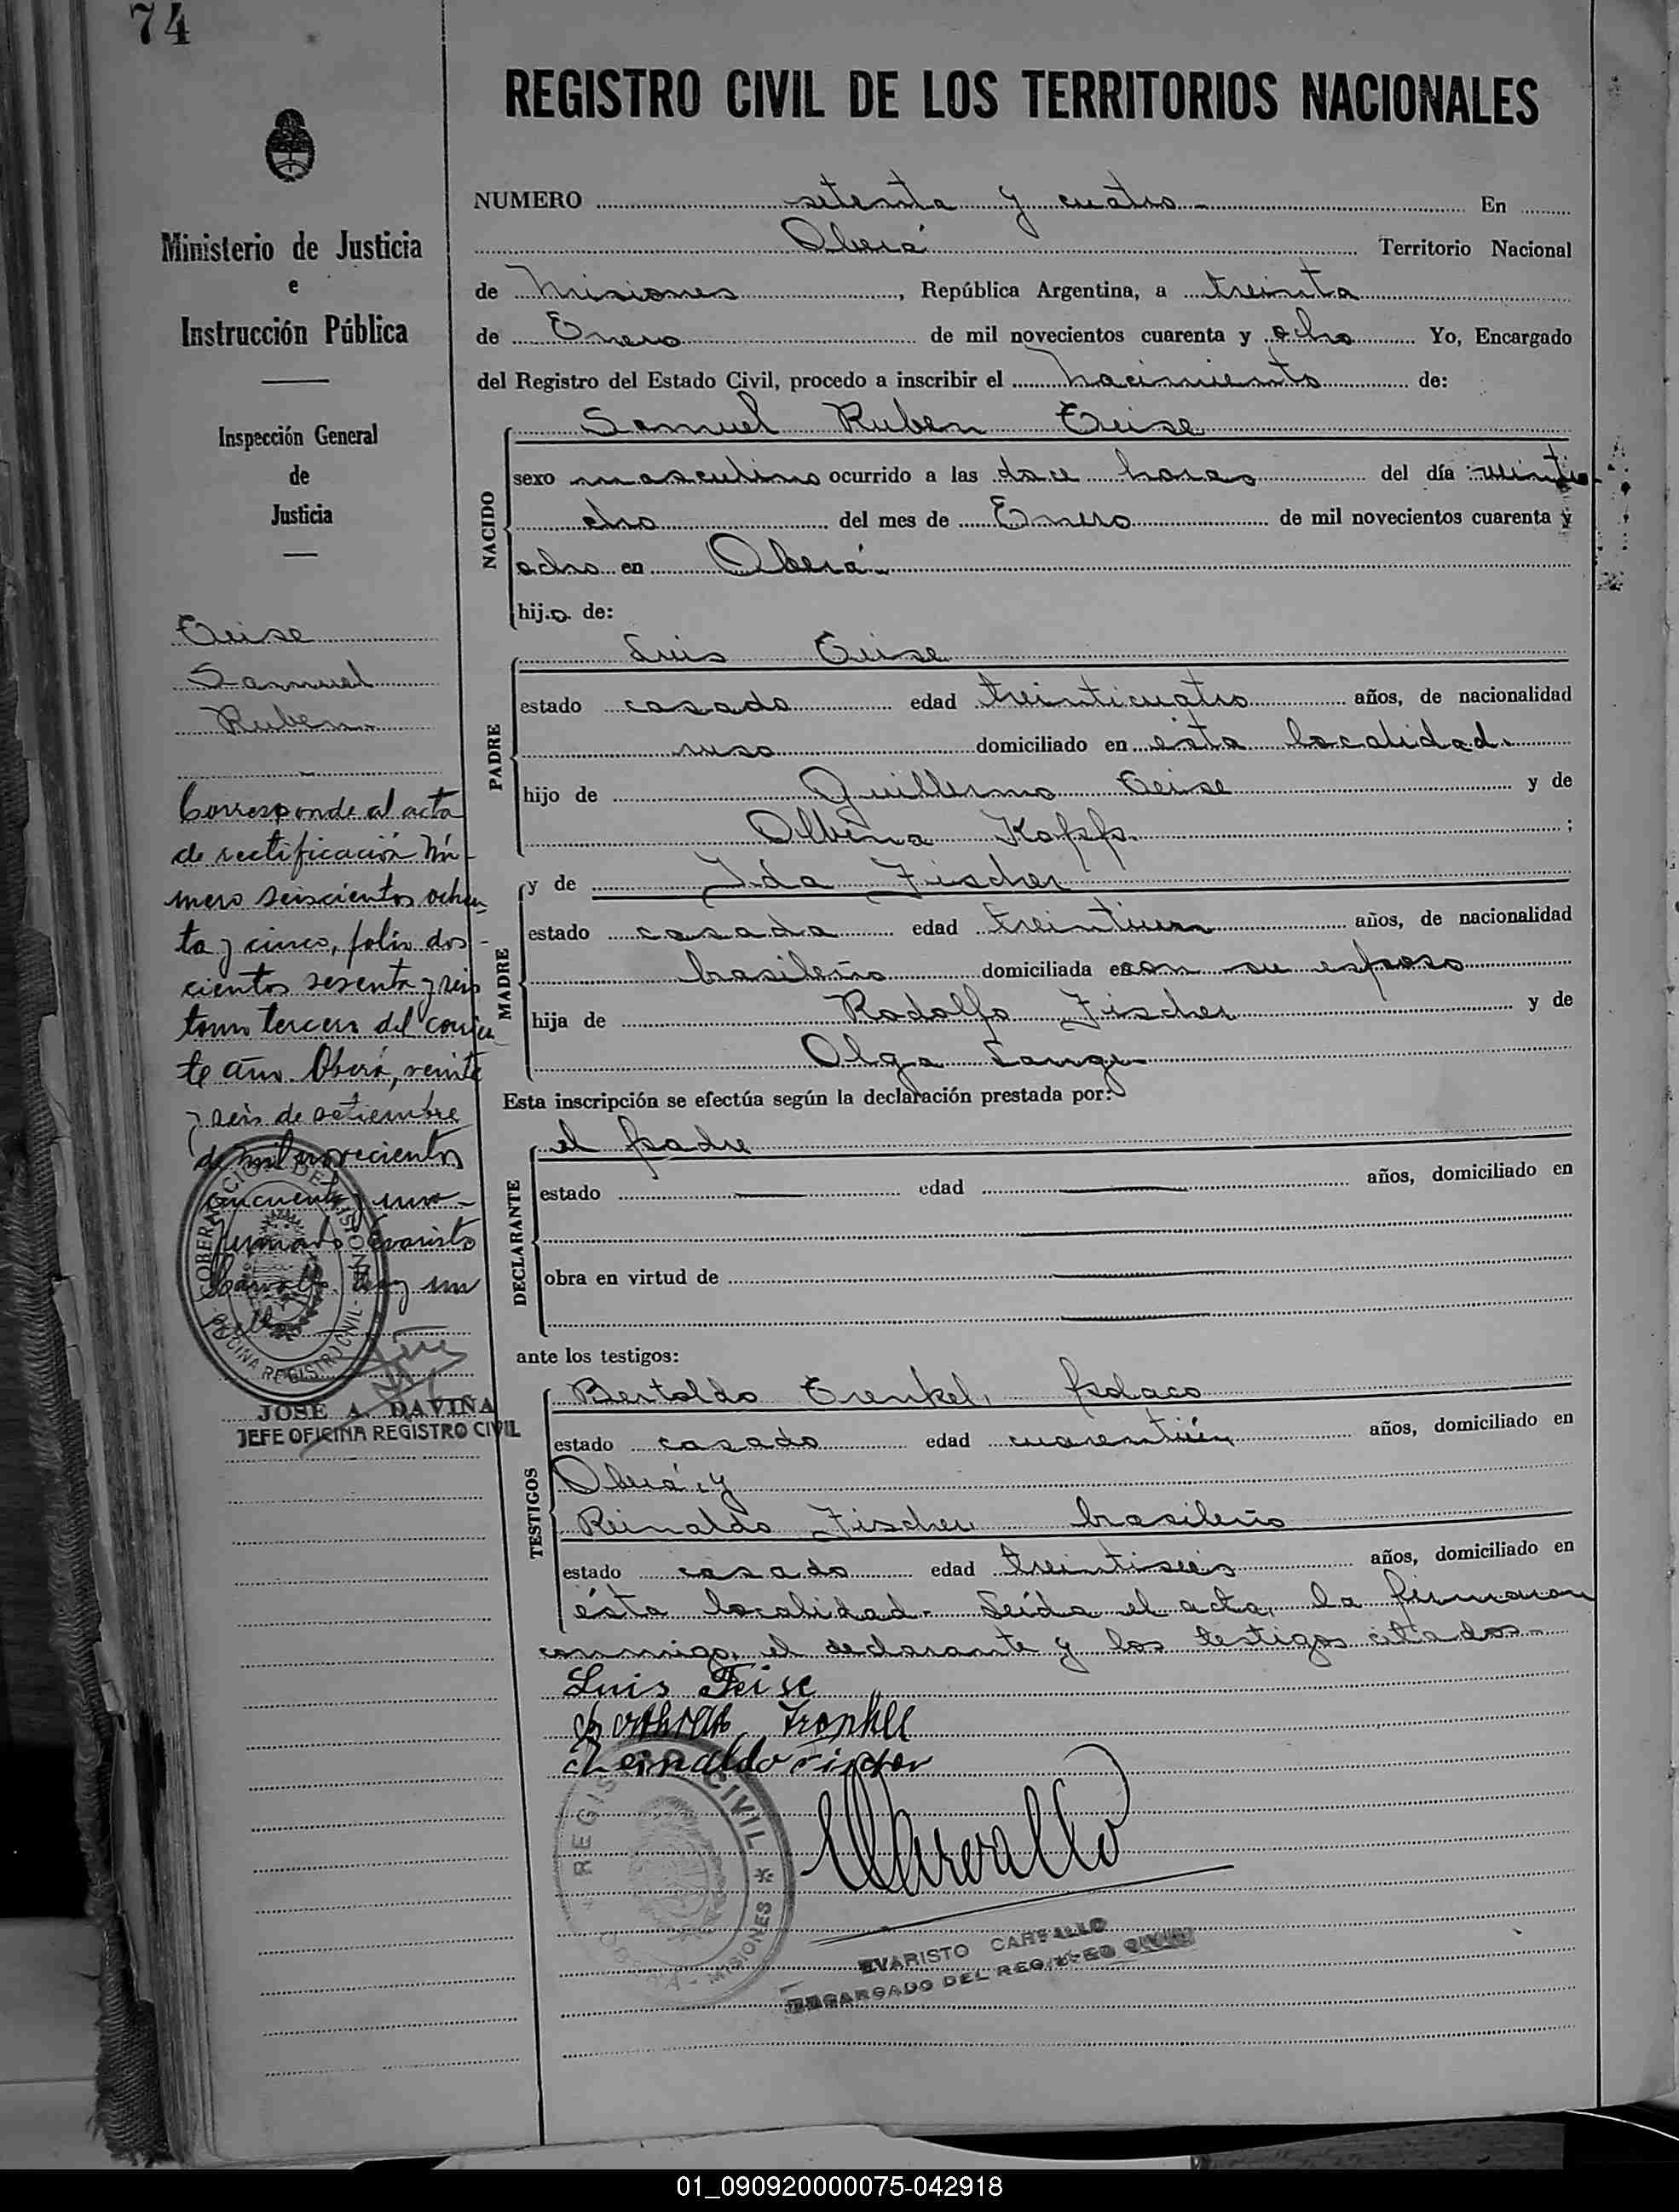 74
REGISTRO CIVIL DE LOS TERRITORIOS NACIONALES
Ministerio de Justicia
e
Instrucción Pública
Inspección General
de
Justicia
NUMERO setenta y cuatro En
Oberá Territorio Nacional
de Misiones, República Argentina, a treinta
de Enero de mil novecientos cuarenta y ocho Yo, Encargado
del Registro del Estado Civil, procedo a inscribir el nacimiento de:
NACIDO
Samuel Ruben Feise
sexo masculino ocurrido a las doce horas del día veintio
cho del mes de Enero de mil novecientos cuarenta y
ocho en Oberá
hijo de:
PADRE
Luis Feise
estado casado edad treinticuatro años, de nacionalidad
ruso domiciliado en ésta localidad.
hijo de Guillermo Feise y de
Albina Kopp ;
MADRE
y de Ida Fischer
estado casada edad treintiun años, de nacionalidad
brasileño domiciliada en con su esposo
hija de Rodolfo Fischer y de
Olga Lange
Esta inscripción se efectúa según la declaración prestada por:
DECLARANTE
el padre
estado edad años, domiciliado en
obra en virtud de
ante los testigos:
TESTIGOS
Bertoldo Frenkel, polaco
estado casado edad cuarentiún años, domiciliado en
Oberá, y
Reinaldo Fischer brasileño
estado casado edad treintiseis años, domiciliado en
ésta localidad. Leída el acta, la firmaron
conmigo, el declarante y los testigos citados
Luis Feise
Reinaldo
EVARISTO CARVALLO
ENCARGADO DEL REGISTRO CIVIL
REGISTRO CIVIL * OBERA - MISIONES
Feise
Samuel
Ruben
Corresponde al acta
de rectificación Nú-
mero seiscientos ochen
ta y cinco, folio dos-
cientos sesenta y seis
tomo tercero del corrien
te año. Oberá, veinte
y seis de setiembre
de mil novecientos
cincuenta y uno
firmado Evaristo
Carvallo. Hay un
sello
GOBERNACION DE MISIONES - OFICINA REGISTRO CIVIL -
JOSE A. DAVIÑA
JEFE OFICINA REGISTRO CIVIL
01_090920000075-042918